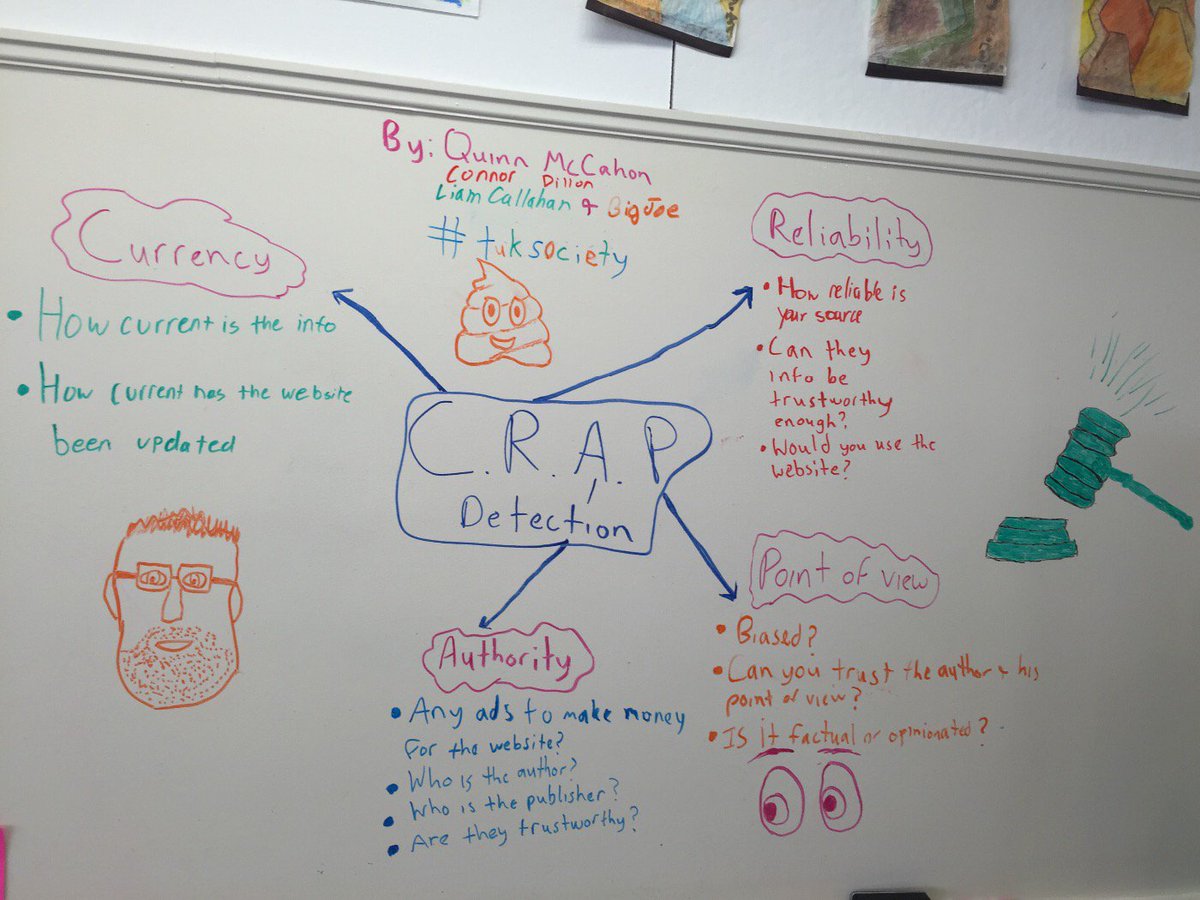 By: Quinn McCahon
Connor Dillon
Liam Callahan & Big Joe
#tuksociety
Currency
• How current is the info
• How current has the website
been updated
C.R.A.P
Detection
Reliability
• How reliable is
your source
• Can they
info be
trustworthy
enough?
• Would you use the
website?
Authority
• Any ads to make money
for the website?
• Who is the author?
• Who is the publisher?
• Are they trustworthy?
Point of view
• Biased?
• Can you trust the author & his
point of view?
• Is it factual or opinionated?